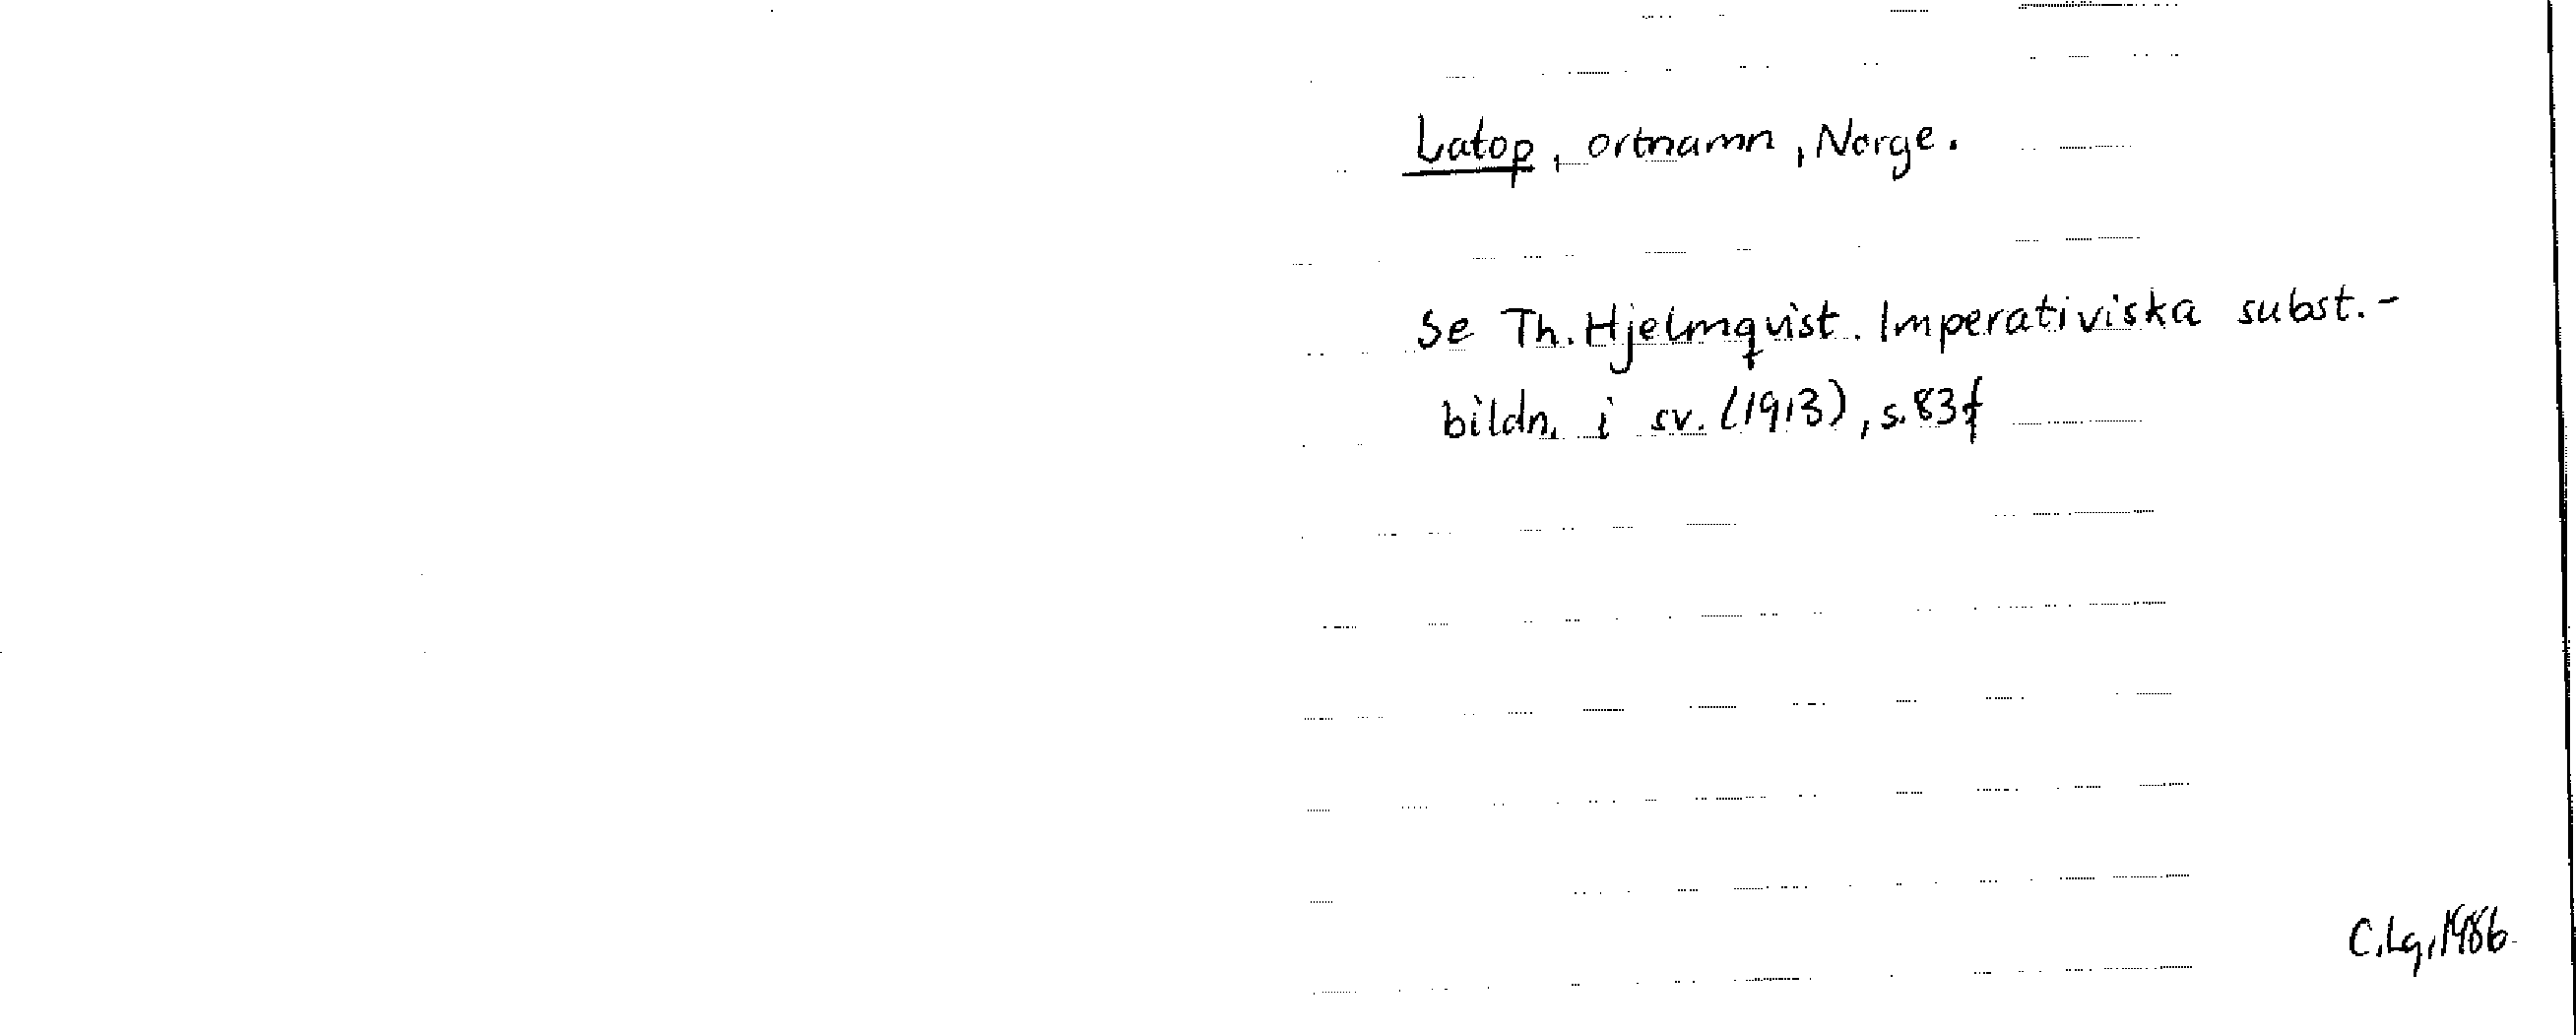 Latop, ortnamn, Norge.
Se Th. Hjelmqvist. Imperativiska subst.-
bildn. i sv. (1913), s. 83f
C.Lg, 1986